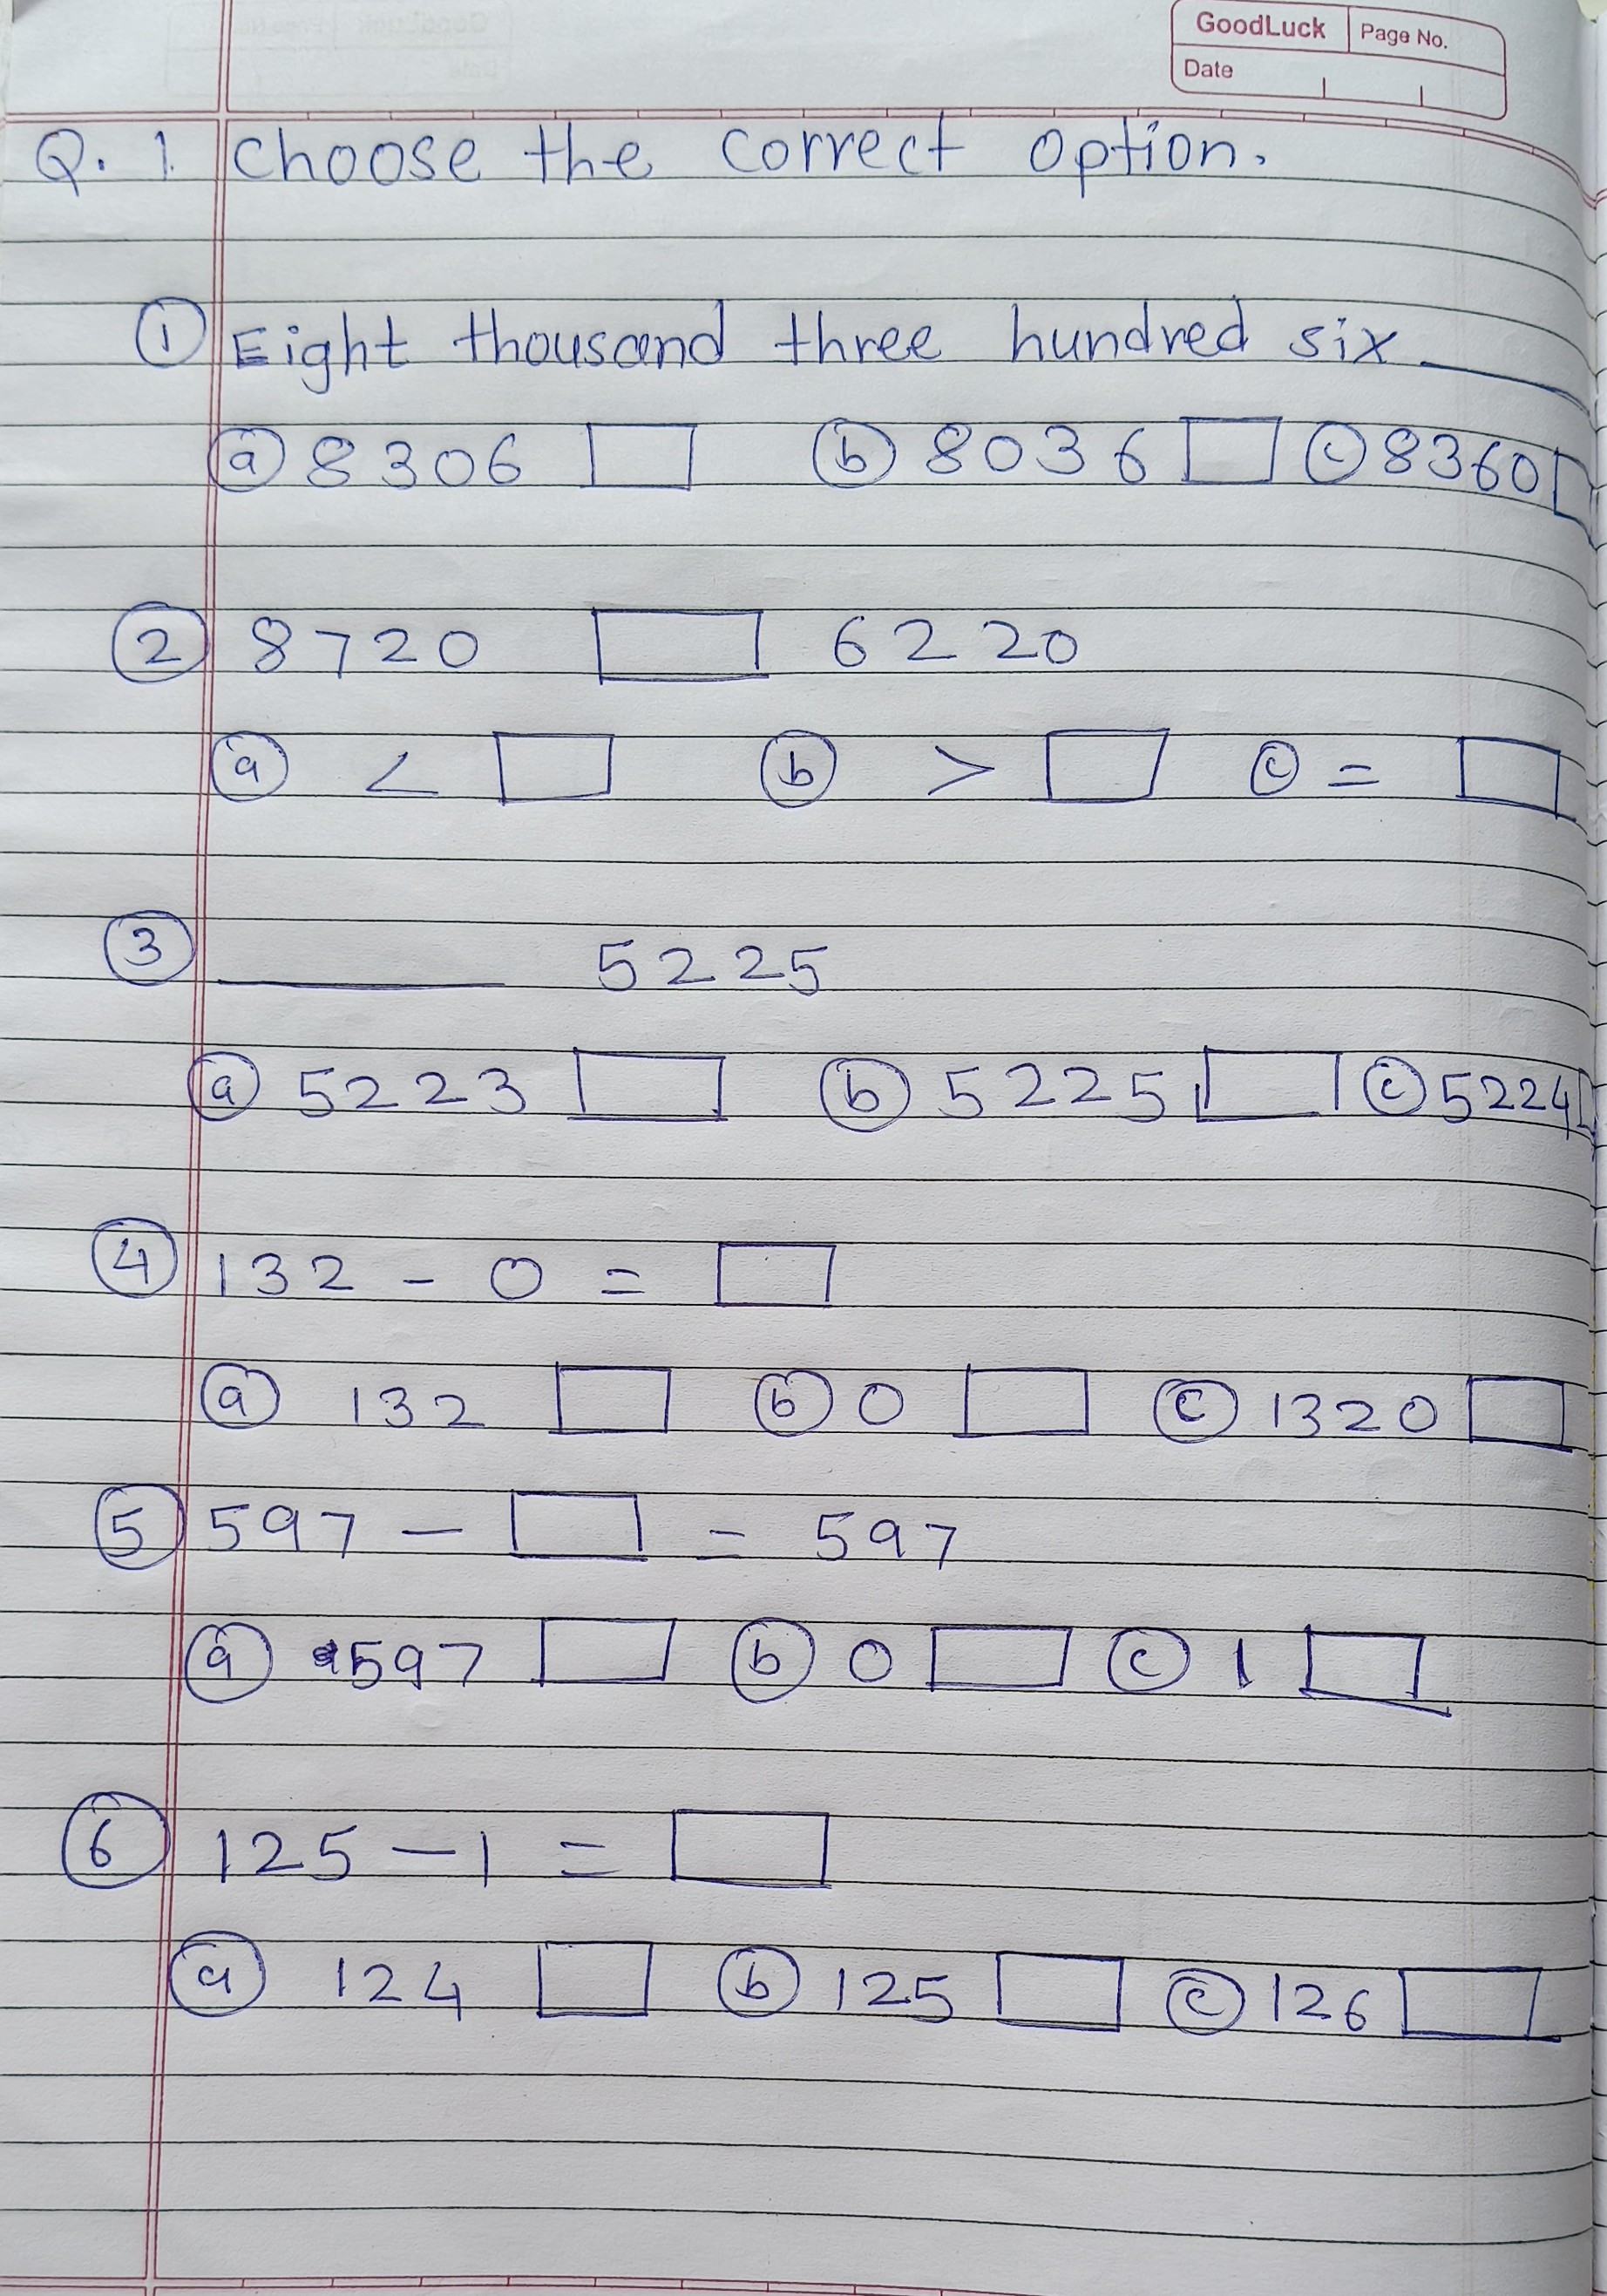 GoodLuck Page No.
Date
Q. 1. Choose the correct option.
① Eight thousand three hundred six ____
ⓐ 8306 ⓑ 8036 ⓒ 8360
② 8720 6220
ⓐ < ⓑ > ⓒ =
③ ____ 5225
ⓐ 5223 ⓑ 5225 ⓒ 5224
④ 132 - 0 =
ⓐ 132 ⓑ 0 ⓒ 1320
⑤ 597 - = 597
ⓐ 597 ⓑ 0 ⓒ 1
⑥ 125 - 1 =
ⓐ 124 ⓑ 125 ⓒ 126